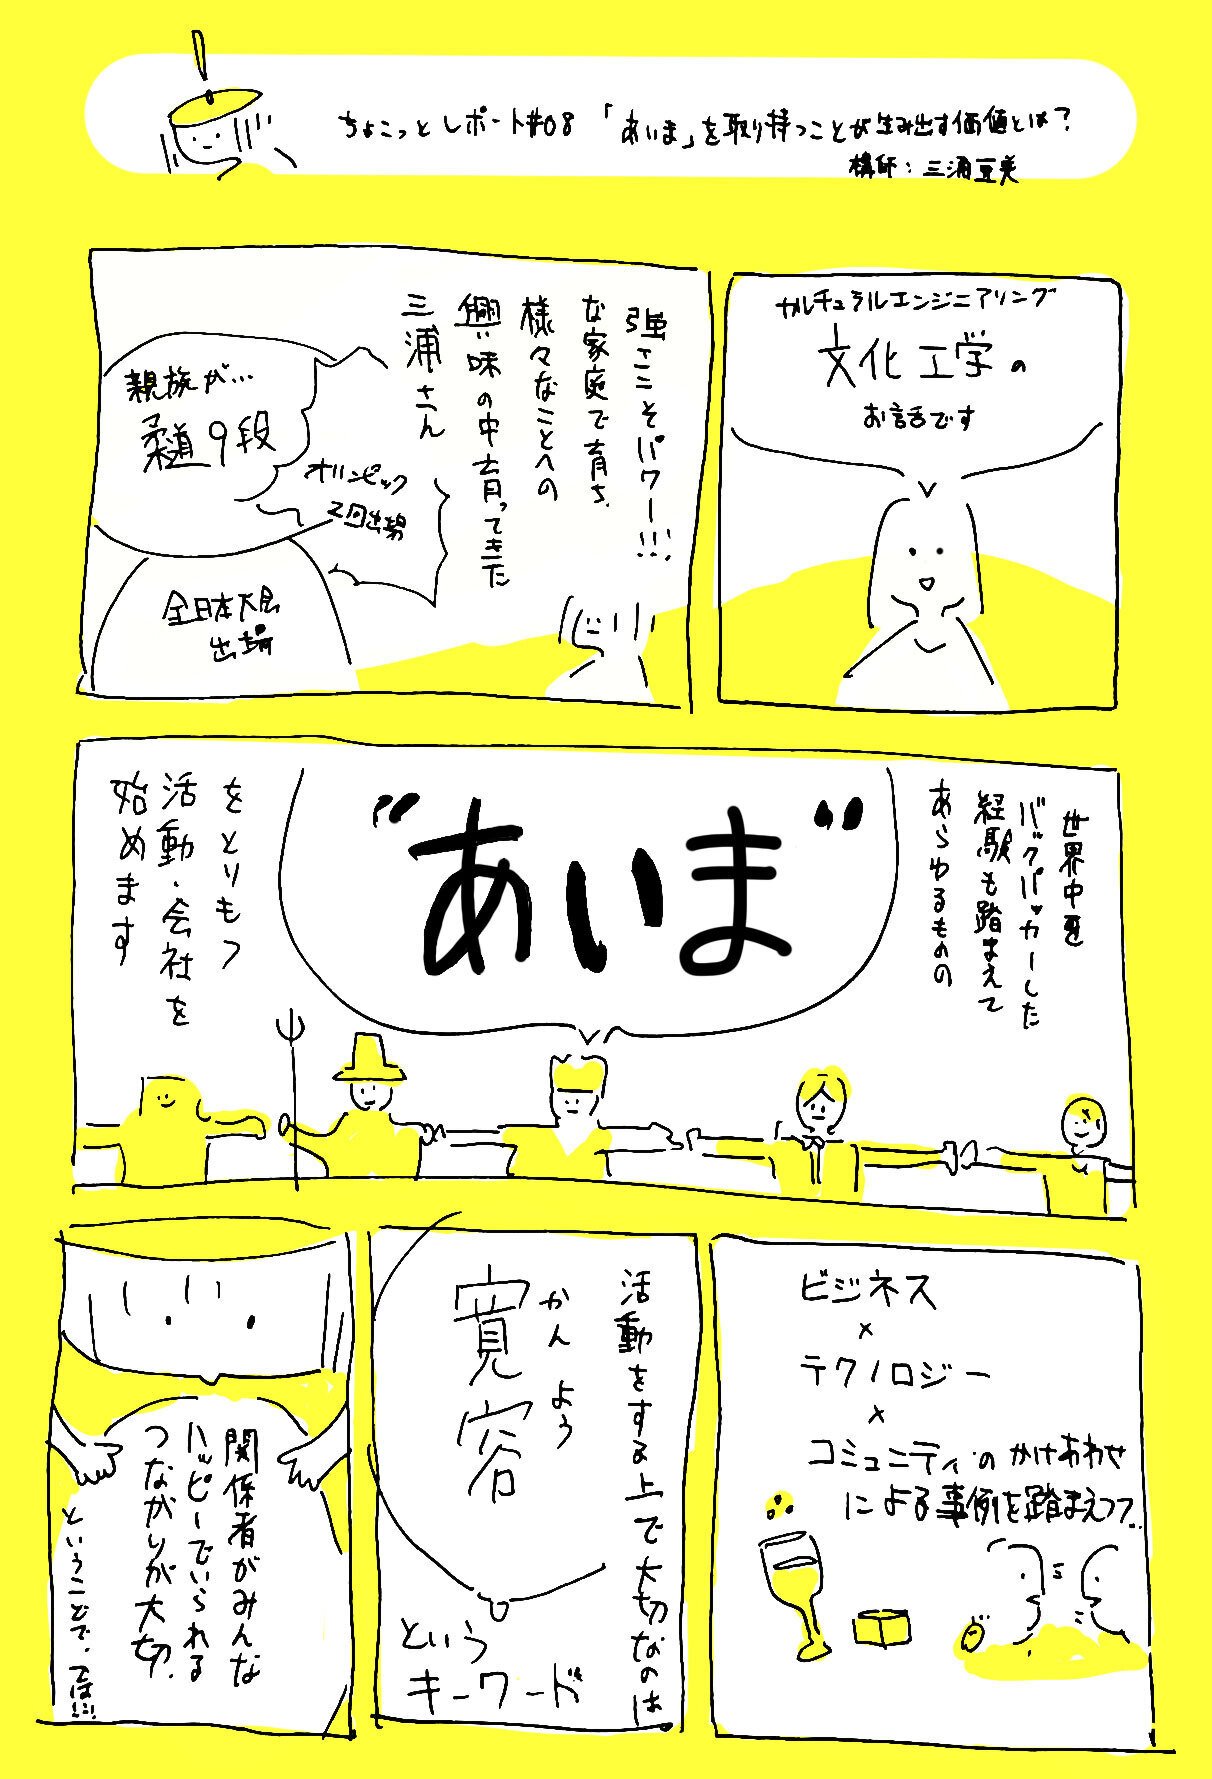 ちょこっとレポート#08 「あいま」を取り持つことが生み出す価値とは？
講師：三浦亜美
カルチュラルエンジニアリング
文化工学の
お話です
強さこそパワー!!!
な家庭で育ち、
様々なことへの
興味の中育ってきた
三浦さん
親族が…
柔道9段
オリンピック
2回出場
全日本大会
出場
世界中を
バックパッカーした
経験も踏まえて
あらゆるものの
"あいま"
をとりもつ
活動・会社を
始めます
ビジネス
×
テクノロジー
×
コミュニティのかけあわせ
による事例を踏まえつつ..
活動をする上で大切なのは、
かんよう
寛容
という
キーワード
関係者がみんな
ハッピーでいられる
つながりが大切、
ということで、では!!!